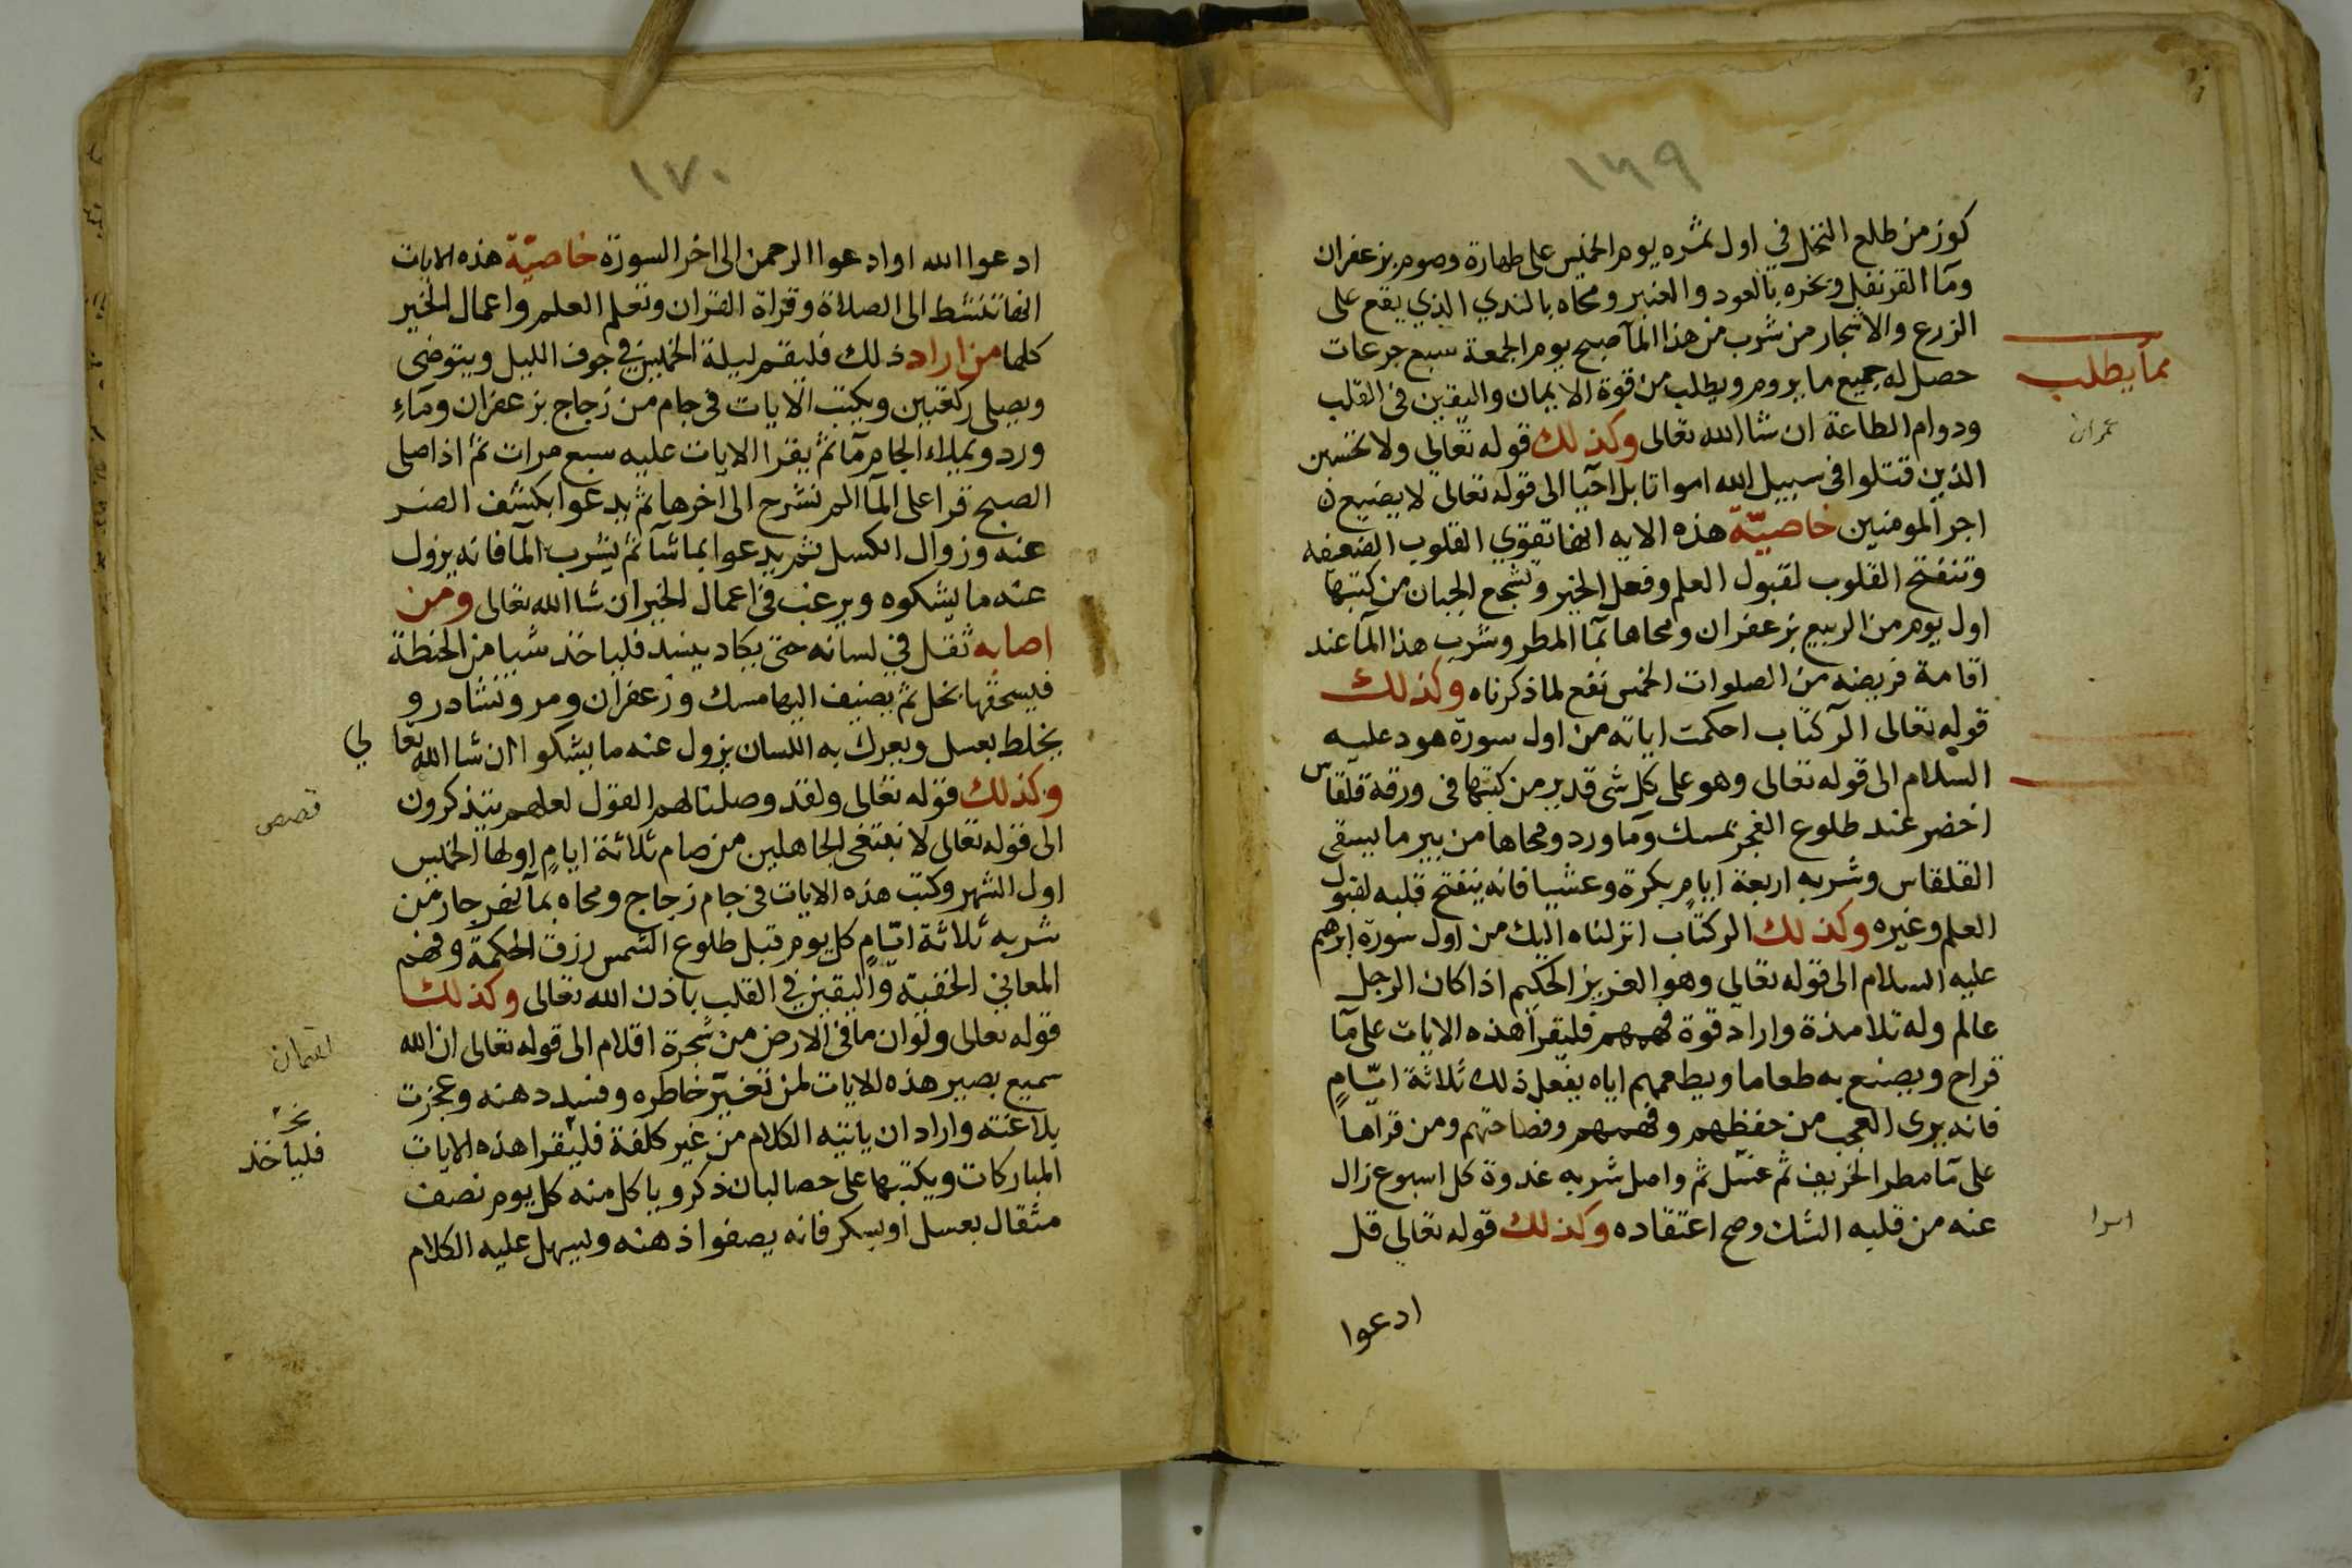 ١٦٩
كوز من طلع النخل في اول ثمره يوم الخميس على طهارة وصوم بزعفران
ومآ القرنفل وبخره بالعود والعنبر ومحاه بالندي الذي يقع على
الزرع والاشجار من شرب من هذا المآ صبح يوم الجمعة سبع جرعات
حصل له جميع ما يروم ويطلب من قوة الايمان واليقين فى القلب
ودوام الطاعة ان شا الله تعالى وكذلك قوله تعالى ولا تحسبن
الذين قتلوا فى سبيل الله امواتا بل احيا الى قوله تعالى لا يضيع
اجر المومنين خاصيّة هذه الايه انها تقوي القلوب الضعيفه
وتنفتح القلوب لقبول العلم وفعل الخير وتشجع الجبان من كتبها
اول يوم من الربيع بزعفران ومحاها بمآ المطر وشرب هذا المآ عند
اقامة فريضه من الصلوات الخمس نفع لما ذكرناه وكذلك
قوله تعالى الٓر كتاب احكمت اياته من اول سورة هود عليه
السلام الى قوله تعالى وهو على كل شى قدير من كتبها فى ورقة قلقاس
اخضر عند طلوع الفجر بمسك ومآ ورد ومحاها من بير ما يسقى
القلقاس وشربه اربعة ايام بكرة وعشيا فانه ينفتح قلبه لقبول
العلم وغيره وكذلك الر كتاب انزلناه اليك من اول سورة ابرهيم
عليه السلام الى قوله تعالى وهو العزيز الحكيم اذا كان الرجل
عالم وله تلامذة واراد قوة فهمهم فليقرا هذه الايات على مآ
قراح ويصنع به طعاما ويطعمهم اياه يفعل ذلك ثلاثة ايّامٍ
فانه يرى العجب من حفظهم وفهمهم وفصاحتهم ومن قراها
على مآ مطر الخريف ثم عسل ثم واصل شربه غدوة كل اسبوع زال
عنه من قلبه الشك وصح اعتقاده وكذلك قوله تعالى قل
ادعوا
مما يطلب
عمران
اسرا
١٧٠
ادعوا الله او ادعوا الرحمن الى اخر السورة خاصيّة هذه الايات
انها تنشط الى الصلاة وقراة القران وتعلم العلم واعمال الخير
كلها من اراد ذلك فليقم ليلة الخميس في جوف الليل ويتوضى
ويصلى ركعتين ويكتب الايات فى جام من زجاج بزعفران ومآءِ
ورد ويملاء الجام مآ ثم يقرا الايات عليه سبع مرات ثم اذا صلى
الصبح قرا على المآ الم نشرح الى آخرها ثم يدعوا بكشف الضر
عنه وزوال الكسل ثم يدعوا بما شآ ثم يشرب المآ فانه يزول
عنه ما يشكوه ويرغب فى اعمال الخير ان شا الله تعالى ومن
اصابه ثقل في لسانه حتى يكاد ينسد فلياخذ شيا من الحنطة
فيسحقها بخل ثم يضيف اليها مسك وزعفران ومر ونشادر و
يخلط بعسل ويعرك به اللسان يزول عنه ما يشكوا ان شا الله تعالي
وكذلك قوله تعالى ولقد وصلنا لهم القول لعلهم يتذكرون
الى قوله تعالى لا نبتغى الجاهلين من صام ثلاثة ايامٍ اولها الخميس
اول الشهر وكتب هذه الايات فى جام زجاج ومحاه بمآ نهر جار من
شربه ثلاثة ايّامٍ كل يوم قبل طلوع الشمس رزق الحكمة وفهم
المعاني الخفيّة واليقين في القلب باذن الله تعالى وكذلك
قوله تعالى ولو ان ما فى الارض من شجرة اقلام الى قوله تعالى ان الله
سميع بصير هذه الايات لمن تغيّر خاطره وفسد دهنه وعجزت
بلاغته واراد ان ياتيه الكلام من غير كلفة فليقرا هذه الايات
المباركات ويكتبها على حصا لبان ذكر وياكل منه كل يوم نصف
مثقال بعسل او بسكر فانه يصفوا ذهنه ويسهل عليه الكلام
قصص
لقمان
فلياخذ